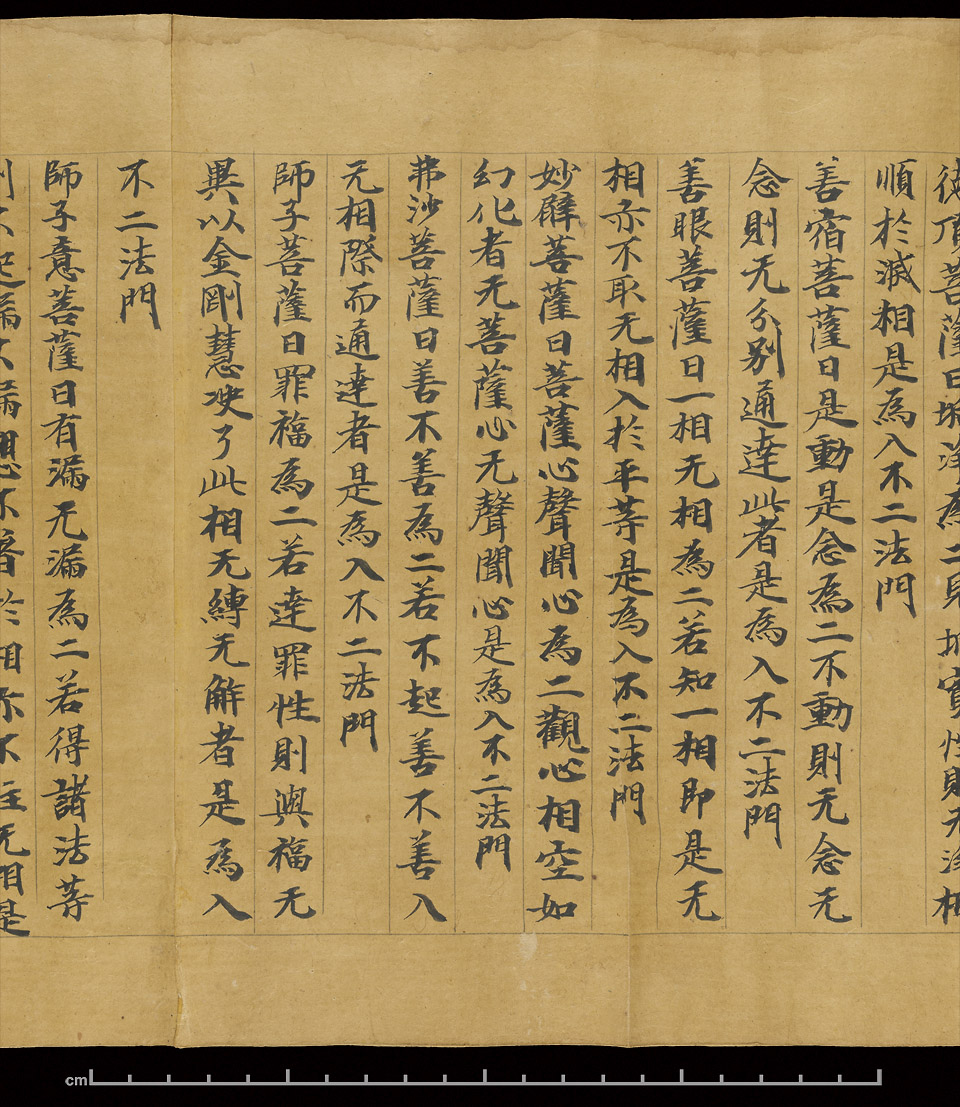 德頂菩薩曰垢淨為二見垢實性則无淨相
順於滅相是為入不二法門
善宿菩薩曰是動是念為二不動則无念无
念則无分別通達此者是為入不二法門
善眼菩薩曰一相无相為二若知一相即是无
相亦不取无相入於平等是為入不二法門
妙臂菩薩曰菩薩心聲聞心為二觀心相空如
幻化者无菩薩心无聲聞心是為入不二法門
弗沙菩薩曰善不善為二若不起善不善入
无相際而通達者是為入不二法門
師子菩薩曰罪福為二若達罪性則與福无
異以金剛慧决了此相无縛无解者是為入
不二法門
師子意菩薩曰有漏无漏為二若得諸法等
則不起漏不漏想不著於相亦不住无相是
cm